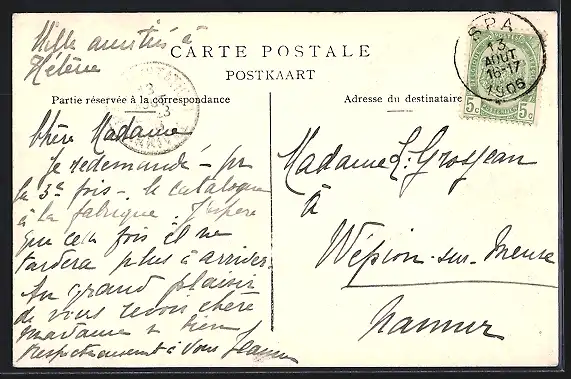 Mille amitiés à
Hélène
CARTE POSTALE
POSTKAART
Partie réservée à la correspondance
Adresse du destinataire
SPA
13
AOUT
16-17
1906
5c 5c
Chère Madame
Je redemande – pr
la 3e fois – le catalogue
à la fabrique. J'espère
que cette fois il ne
tardera plus à arriver.
Au grand plaisir
de vous revoir chère
madame & bien
respectueusement à vous Jeanne
Madame L. Grosjean
à
Wépion-sur-Meuse
Namur